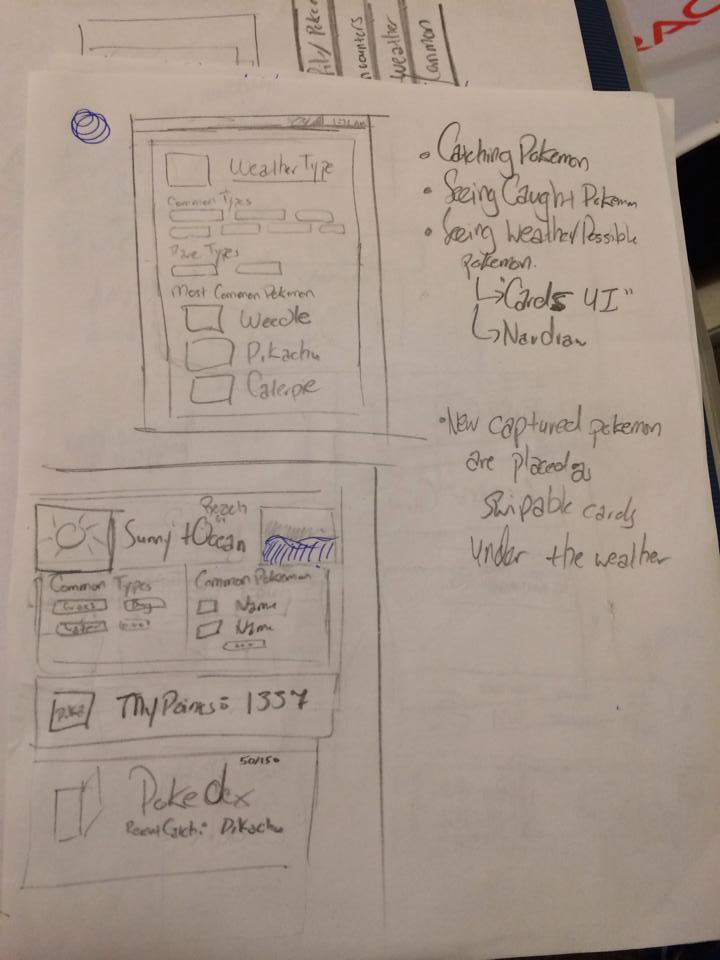 counters
Weather
RAC
Weather Type
Common Types
Rare Types
Most Common Pokemon
Weedle
Pikachu
Caterpie
• Catching Pokemon
• Seeing Caught Pokemon
• Seeing Weather/Possible
pokemon.
"Cards UI"
• New captured pokemon
are placed as
swipable cards
under the weather
Sunny + Ocean
Beach
or
Common Types
Grass Bug
Water ...
Common Pokemon
Name
Name
...
Poké
My Points: 1337
50/150
Pokedex
Recent Catch: Pikachu